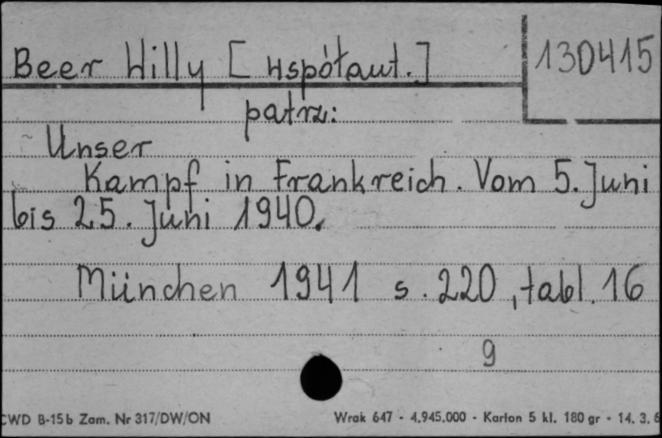 Beer Willy [współaut.]
130415
patrz:
Unser
Kampf in Frankreich. Vom 5. Juni
bis 25. Juni 1940.
München 1941 s. 220, tabl. 16
9
CWD B-15b Zam. Nr 317/DW/ON
Wrak 647 - 4.945.000 - Karton 5 kl. 180 gr - 14. 3. 6